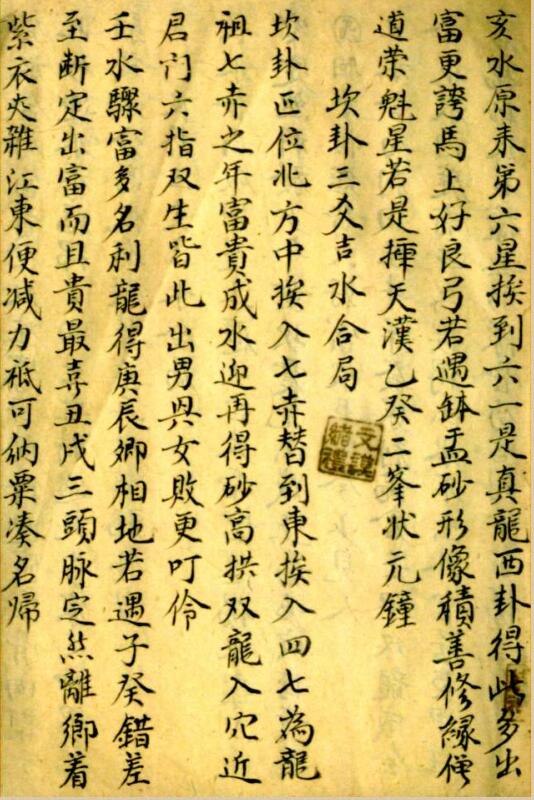 亥水原来第六星挨到六一是真龍西卦得此多出
富更誇馬上好良弓若遇鉢盂砂形像積善修緣僧
道荣魁星若是揷天漢乙癸二峯状元鐘
坎卦三爻吉水合局
坎卦正位北方中挨入七赤替到東挨入四七為龍
祖七赤之年富貴成水迎再得砂高拱双龍入穴近
君门六指双生皆此出男與女敗更叮伶
壬水驟富多名利龍得庚辰卿相地若遇子癸錯差
至断定出富而且貴最喜丑戌三頭脉定然離鄉着
紫衣夾雜江東便减力祗可納粟凑名帰